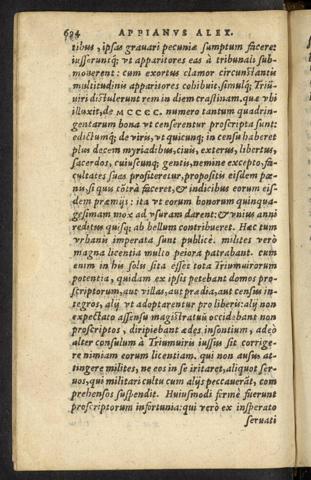 694 APPIANVS ALEX.
tibus, ipsas grauari pecuniæ sumptum facere:
iusseruntq́; vt apparitores eas à tribunali sub-
mouerent: cum exortus clamor circunstantis
multitudinis apparitores cohibuit. simulq́; Triū-
uiri distulerunt rem in diem crastinam. quæ vbi
illuxit, de MCCCC. numero tantum quadrin-
gentarum bona vt censerentur proscripta sunt:
edictumq́; de viris, vt quicunq; in censu haberet
plus decem myriadibus, ciuis, exterus, libertus,
sacerdos, cuiuscunq; gentis, nemine excepto, fa-
cultates suas profiteretur, propositis eisdem pœ-
nis, si quis cōtrà faceret, & indicibus eorum eis-
dem præmijs: ita vt eorum bonorum quinqua-
gesimam mox ad vsuram darent: & vnius anni
reditus quisq; ab bellum contribueret. Hæc tum
vrbanis imperata sunt publicè. milites verò
magna licentia multo peiora patrabant. cum
enim in his solis sita esset tota Triumuirorum
potentia, quidam ex ipsis petebant domos pro-
scriptorum, aut villas, aut prædia, aut census in-
tegros, alij vt adoptarentur pro liberis: alij non
expectato assensu magistratuū occidebant non
proscriptos, diripiebant ædes insontium, adeò
alter consulum à Triumuiris iussus sit corrige-
re nimiam eorum licentiam. qui non ausus at-
tingere milites, ne eos in se irritaret, aliquot ser-
uos, qui militari cultu cum alijs peccauerāt, com
prehensos suspendit. Huiusmodi fermè fuerunt
proscriptorum infortunia: qui verò ex insperato
seruati